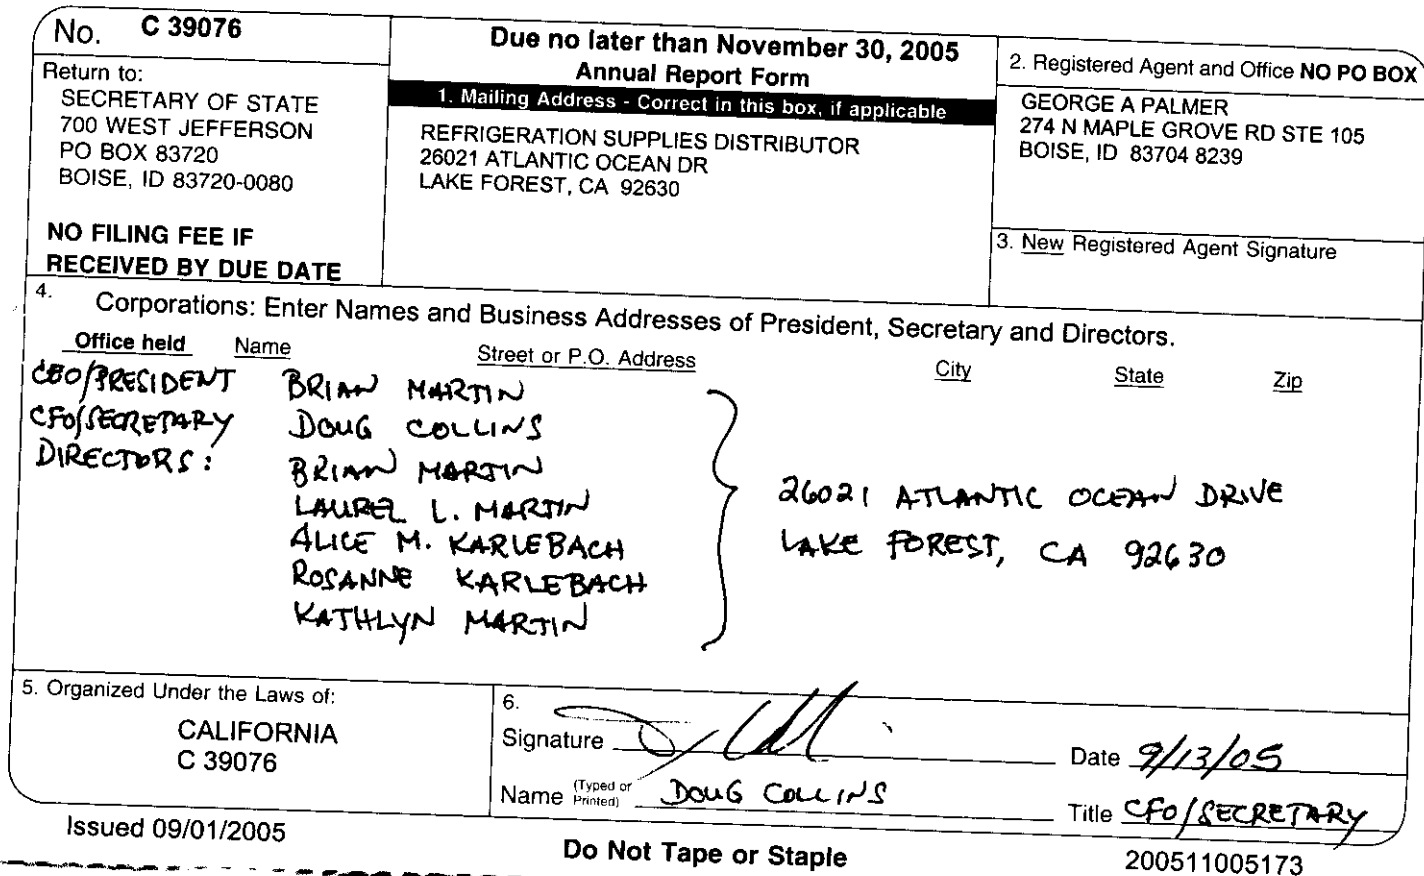 No. C 39076
Return to:
SECRETARY OF STATE
700 WEST JEFFERSON
PO BOX 83720
BOISE, ID 83720-0080
NO FILING FEE IF
RECEIVED BY DUE DATE
Due no later than November 30, 2005
Annual Report Form
1. Mailing Address - Correct in this box, if applicable
REFRIGERATION SUPPLIES DISTRIBUTOR
26021 ATLANTIC OCEAN DR
LAKE FOREST, CA 92630
2. Registered Agent and Office NO PO BOX
GEORGE A PALMER
274 N MAPLE GROVE RD STE 105
BOISE, ID 83704 8239
3. New Registered Agent Signature
4. Corporations: Enter Names and Business Addresses of President, Secretary and Directors.
Office held Name Street or P.O. Address City State Zip
CEO/PRESIDENT BRIAN MARTIN
CFO/SECRETARY DOUG COLLINS
DIRECTORS: BRIAN MARTIN
LAUREL L. MARTIN
ALICE M. KARLEBACH
ROSANNE KARLEBACH
KATHLYN MARTIN
26021 ATLANTIC OCEAN DRIVE
LAKE FOREST, CA 92630
5. Organized Under the Laws of:
CALIFORNIA
C 39076
6.
Signature
Date 9/13/05
Name (Typed or Printed) DOUG COLLINS
Title CFO/SECRETARY
Issued 09/01/2005
Do Not Tape or Staple
200511005173